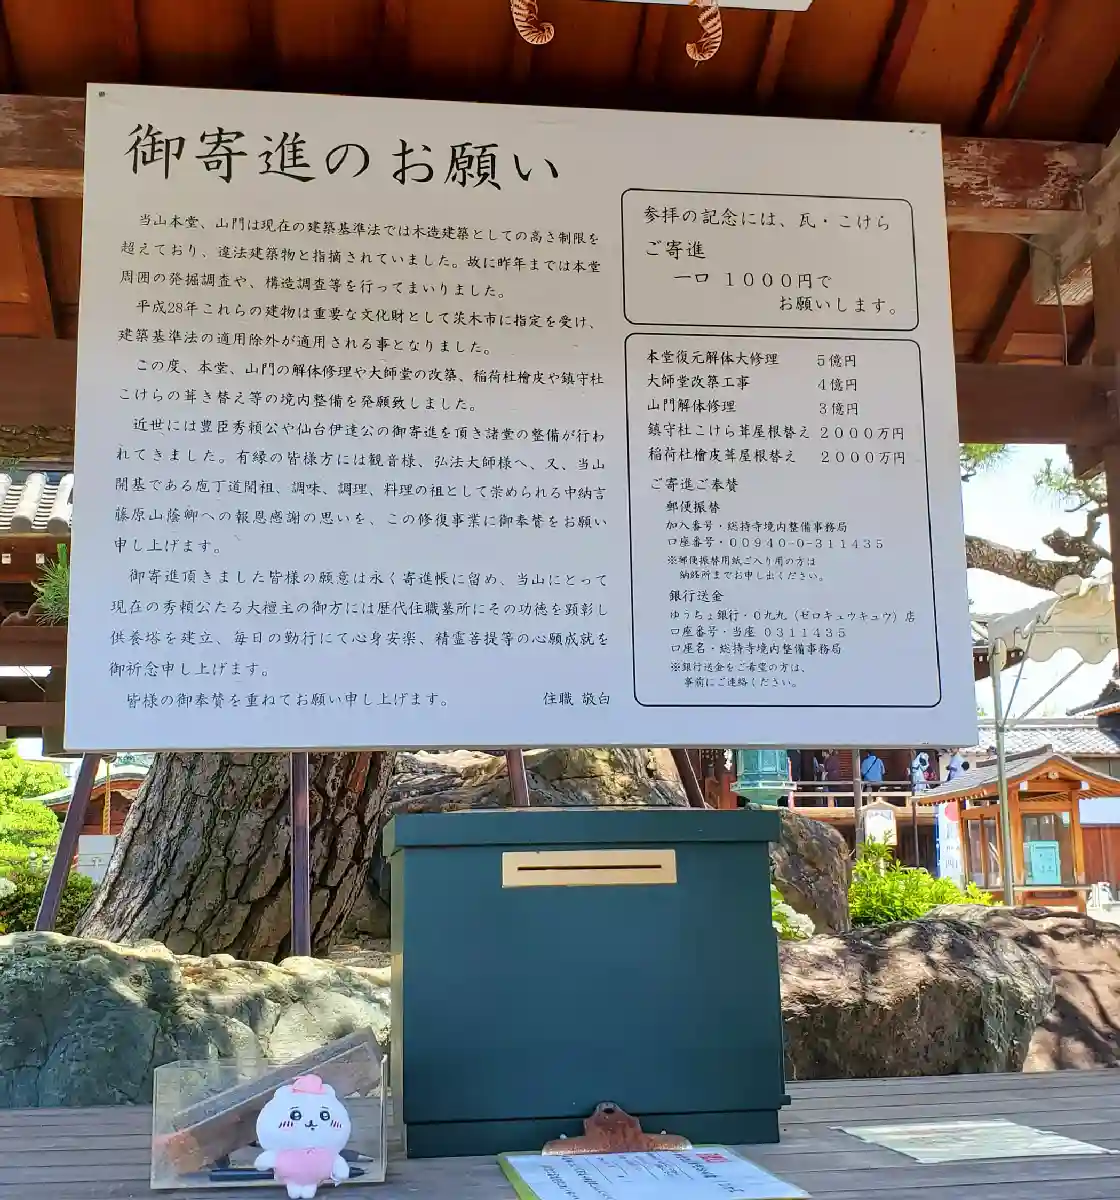 御寄進のお願い
当山本堂、山門は現在の建築基準法では木造建築としての高さ制限を
超えており、違法建築物と指摘されていました。故に昨年までは本堂
周囲の発掘調査や、構造調査等を行ってまいりました。
平成28年これらの建物は重要な文化財として茨木市に指定を受け、
建築基準法の適用除外が適用される事となりました。
この度、本堂、山門の解体修理や大師堂の改築、稲荷社檜皮や鎮守社
こけらの葺き替え等の境内整備を発願致しました。
近世には豊臣秀頼公や仙台伊達公の御寄進を頂き諸堂の整備が行わ
れてきました。有縁の皆様方には観音様、弘法大師様へ、又、当山
開基である庖丁道開祖、調味、調理、料理の祖として崇められる中納言
藤原山蔭卿への報恩感謝の思いを、この修復事業に御奉賛をお願い
申し上げます。
御寄進頂きました皆様の願意は永く寄進帳に留め、当山にとって
現在の秀頼公たる大檀主の御方には歴代住職墓所にその功徳を顕彰し
供養塔を建立、毎日の勤行にて心身安楽、精霊菩提等の心願成就を
御祈念申し上げます。
皆様の御奉賛を重ねてお願い申し上げます。 住職 敬白
参拝の記念には、瓦・こけら
ご寄進
一口 1000円で
お願いします。
本堂復元解体大修理 5億円
大師堂改築工事 4億円
山門解体修理 3億円
鎮守社こけら葺屋根替え 2000万円
稲荷社檜皮葺屋根替え 2000万円
ご寄進ご奉賛
郵便振替
加入番号・総持寺境内整備事務局
口座番号・00940-0-311435
※郵便振替用紙ご入り用の方は
納経所までお申し出ください。
銀行送金
ゆうちょ銀行・0九九（ゼロキュウキュウ）店
口座番号・当座 0311435
口座名・総持寺境内整備事務局
※銀行送金をご希望の方は、
事前にご連絡ください。